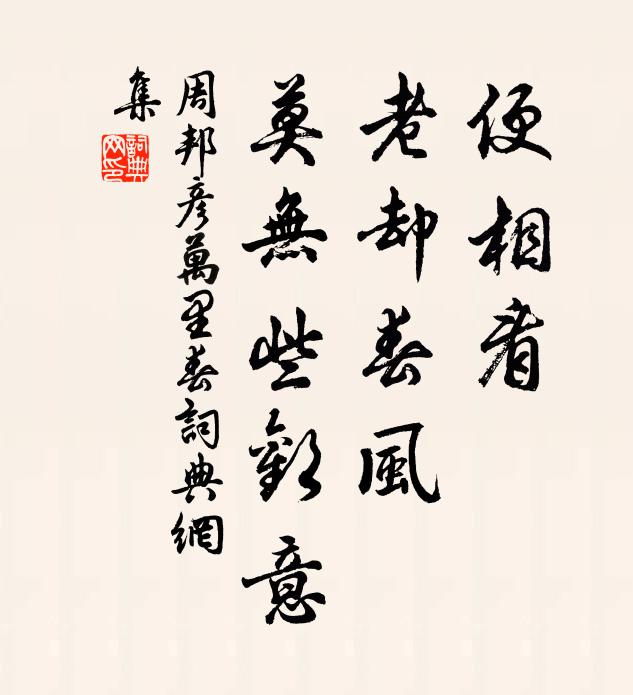 便相看
老却春風
莫無些歡意
周邦彦萬里春詞典網
集
詞典
网印